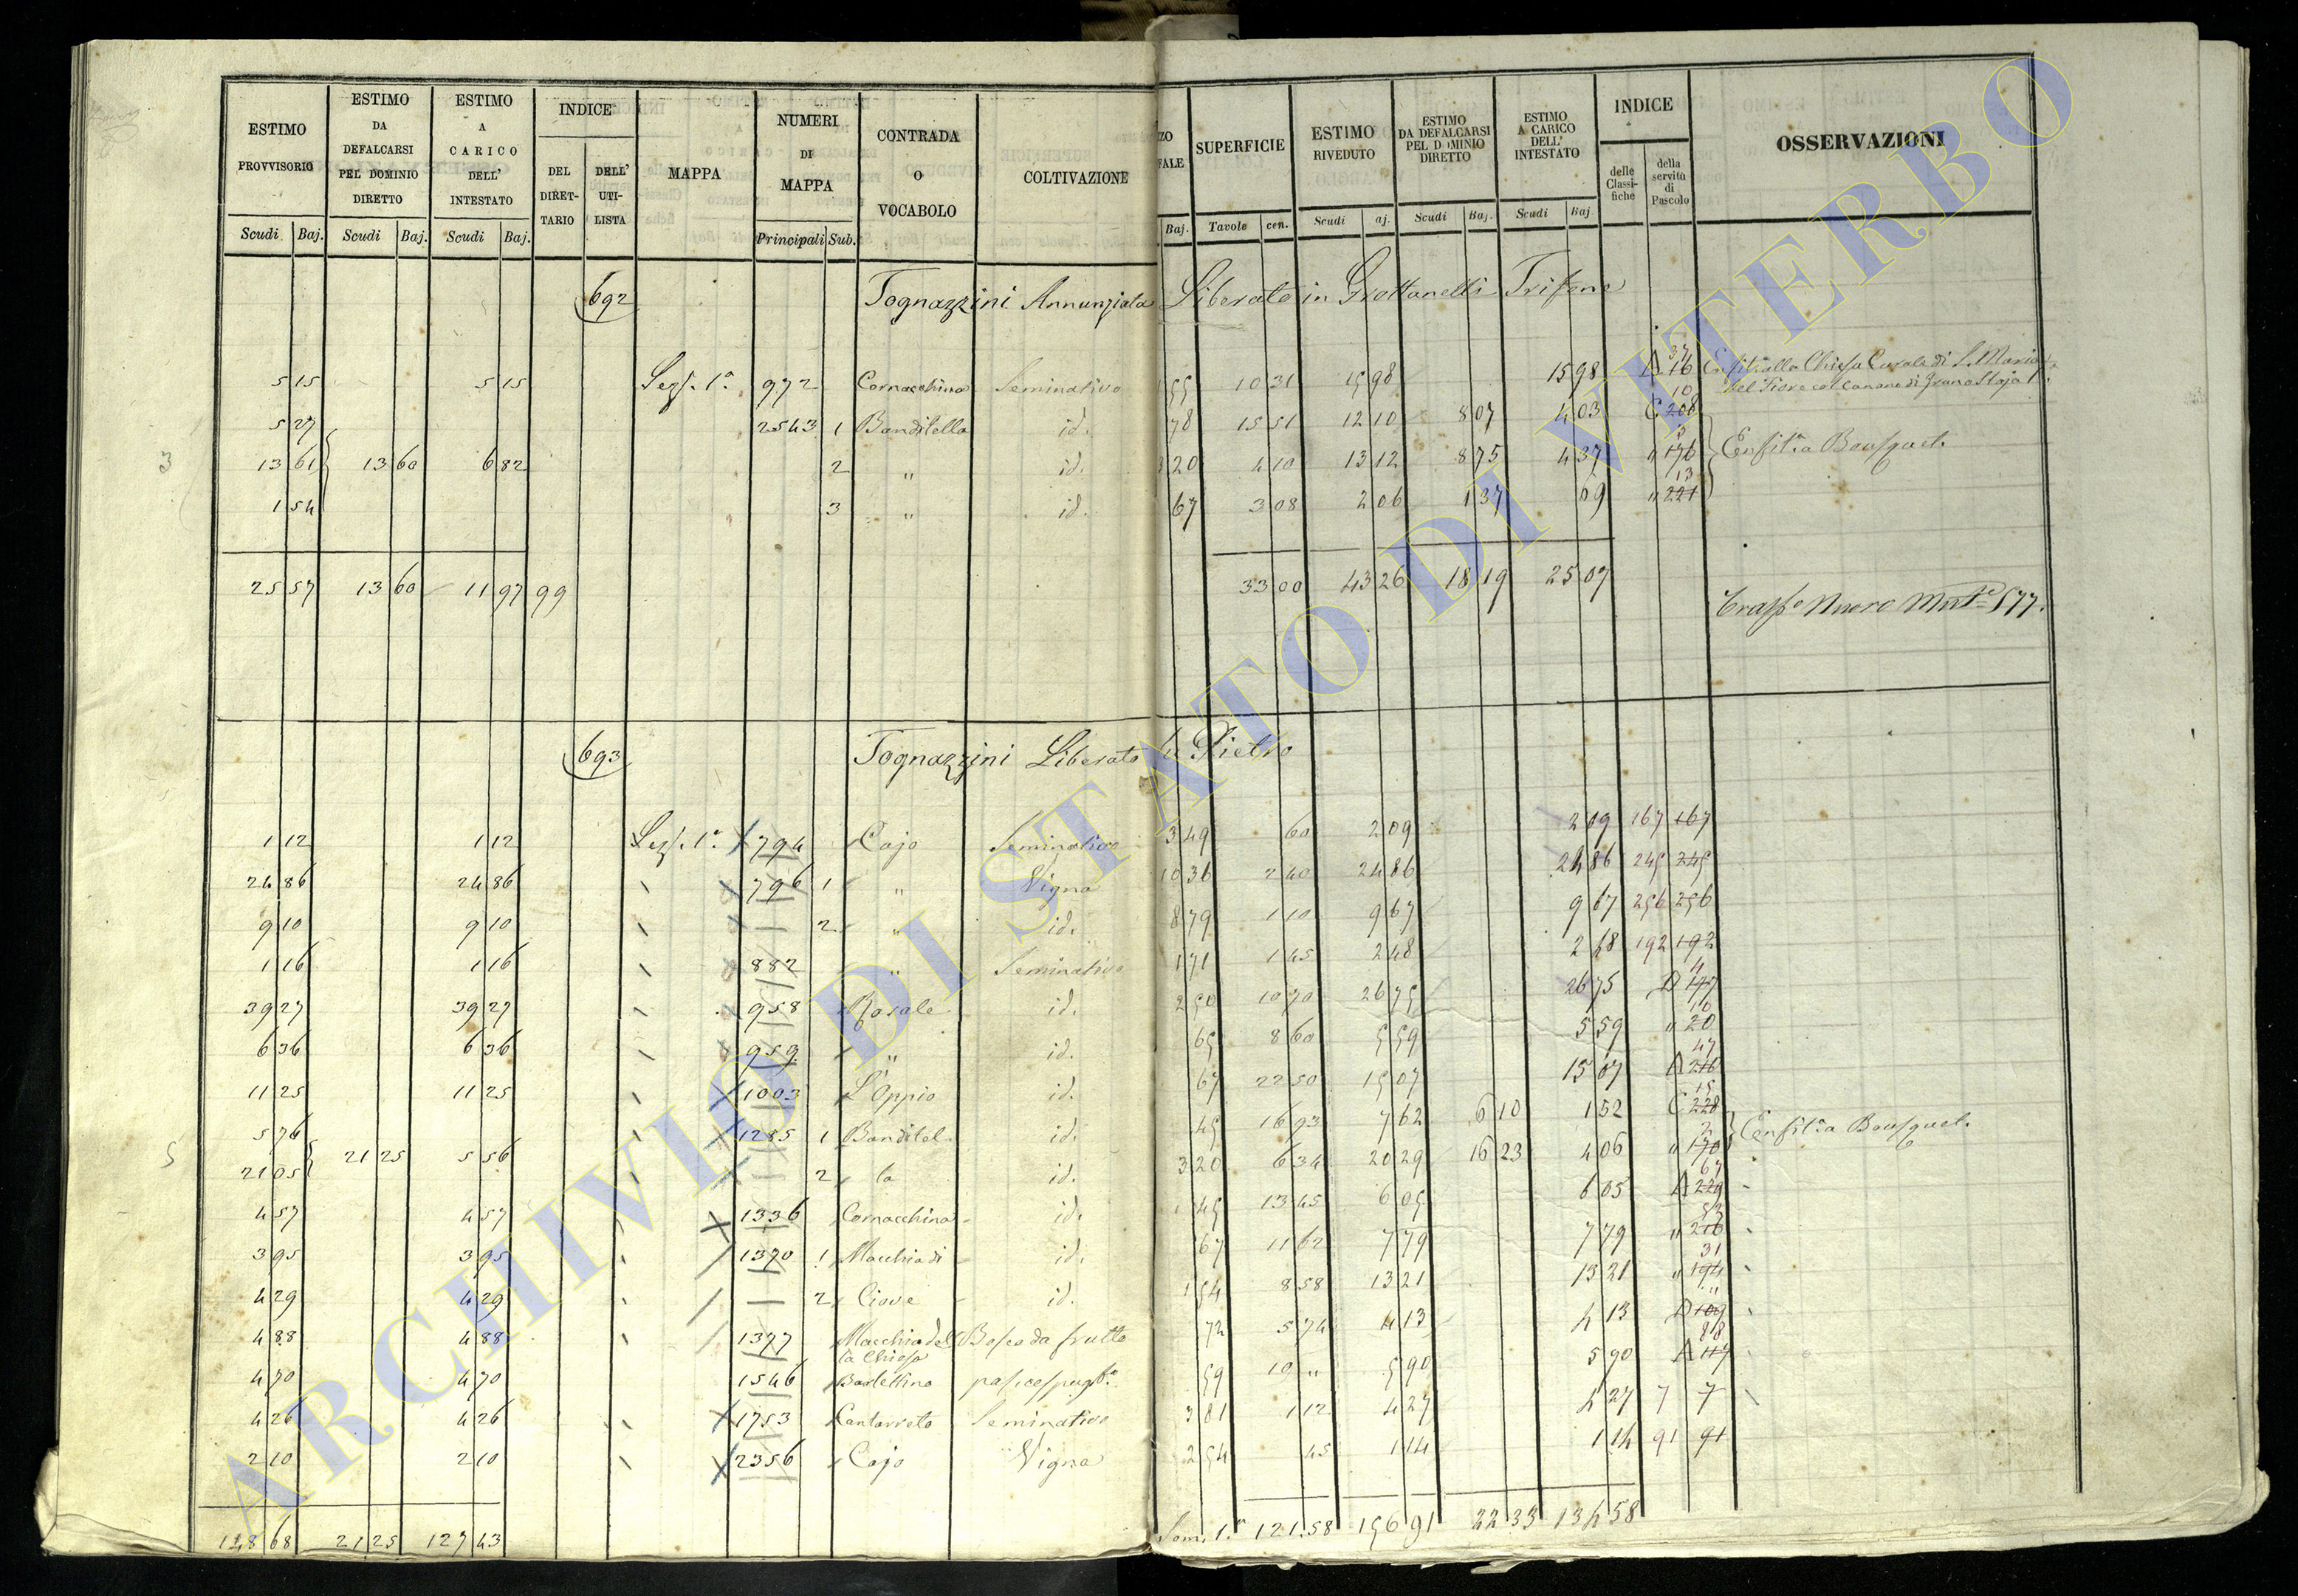 ESTIMO PROVVISORIO | ESTIMO DA DEFALCARSI PEL DOMINIO DIRETTO | ESTIMO A CARICO DELL' INTESTATO | INDICE | MAPPA | NUMERI DI MAPPA | CONTRADA O VOCABOLO | COLTIVAZIONE | SUPERFICIE | ESTIMO RIVEDUTO | ESTIMO DA DEFALCARSI PEL DOMINIO DIRETTO | ESTIMO A CARICO DELL' INTESTATO | INDICE | OSSERVAZIONI
DEL DIRETTARIO | DELL' UTILISTA | delle Classifiche | della servitù di Pascolo
Scudi | Baj. | Scudi | Baj. | Scudi | Baj. | Principali | Sub. | Baj. | Tavole | cen. | Scudi | aj. | Scudi | Baj. | Scudi | Baj
692 Tognazzini Annunziata Liberato in Grottanelli Trifone
5 15 | 5 15 | Sez. 1a | 972 | Cornacchina | Seminativo | 55 | 10 31 | 15 98 | 15 98 | A 16 37 | Enfit. alla Chiesa Curale di S. Maria
del Fiore col Canone di Grano Staja 1
5 27 | 2543 1 | Banditella | id. | 78 | 15 51 | 12 10 | 8 07 | 4 03 | C 208 10
13 61 | 13 60 | 6 82 | 2 | " | id. | 3 20 | 4 10 | 13 12 | 8 75 | 4 37 | " 176 | Enfit. a Bousquet.
1 54 | 3 | " | id. | 67 | 3 08 | 2 06 | 1 37 | 69 | " 221 13
25 57 | 13 60 | 11 97 | 99 | 33 00 | 43 26 | 18 19 | 25 07
577.
693 Tognazzini Liberato di Pietro
1 12 | 1 12 | Sez. 1a | 794 | Cajo | Seminativo | 3 49 | 60 | 2 09 | 2 09 | 167 167
24 86 | 24 86 | 796 1 | " | Vigna | 10 36 | 2 40 | 24 86 | 24 86 | 245 245
9 10 | 9 10 | 2 | " | id. | 8 79 | 1 10 | 9 67 | 9 67 | 256 256
1 16 | 1 16 | 882 | " | Seminativo | 1 71 | 1 45 | 2 48 | 2 48 | 192 192
39 27 | 39 27 | 958 | Rosale | id. | 2 50 | 10 70 | 26 75 | 26 75 | D 4
6 36 | 6 36 | 959 | " | id. | 65 | 8 60 | 5 59 | 5 59 | " 20 10
11 25 | 11 25 | 1003 | L'Oppio | id. | 67 | 22 50 | 15 07 | 15 07 | A 216 47
5 76 | 1285 1 | Banditel | id. | 45 | 16 93 | 7 62 | 6 10 | 1 52 | C 228 15 | Enfit. a Bousquet.
21 05 | 21 25 | 5 56 | 2 | la | id. | 3 20 | 6 34 | 20 29 | 16 23 | 4 06 | " 170 2
4 57 | 4 57 | 1336 | Cornacchina | id. | 45 | 13 45 | 6 05 | 6 05 | A 229 67
3 95 | 3 95 | 1370 1 | Macchia di | id. | 67 | 11 62 | 7 79 | 7 79 | " 216 53
4 29 | 4 29 | 2 | Ciove | id. | 1 54 | 8 58 | 13 21 | 13 21 | " 194 31
4 88 | 4 88 | 1377 | Macchia del | Bosco da frutto | 72 | 5 74 | 4 13 | 4 13 | D 109
la Chiesa
4 70 | 4 70 | 1546 | Barlettino | 59 | 10 " | 5 90 | 5 90 | A 117
4 26 | 4 26 | 1753 | Cantarreto | Seminativo | 3 81 | 1 12 | 4 27 | 4 27 | 7 7
2 10 | 2 10 | 2356 | Cajo | Vigna | 2 54 | 45 | 1 14 | 1 14 | 91 91
148 68 | 21 25 | 127 43 | Som. 1a | 121.58 | 156 91 | 22 33 | 134 58
ARCHIVIO DI STATO DI VITERBO